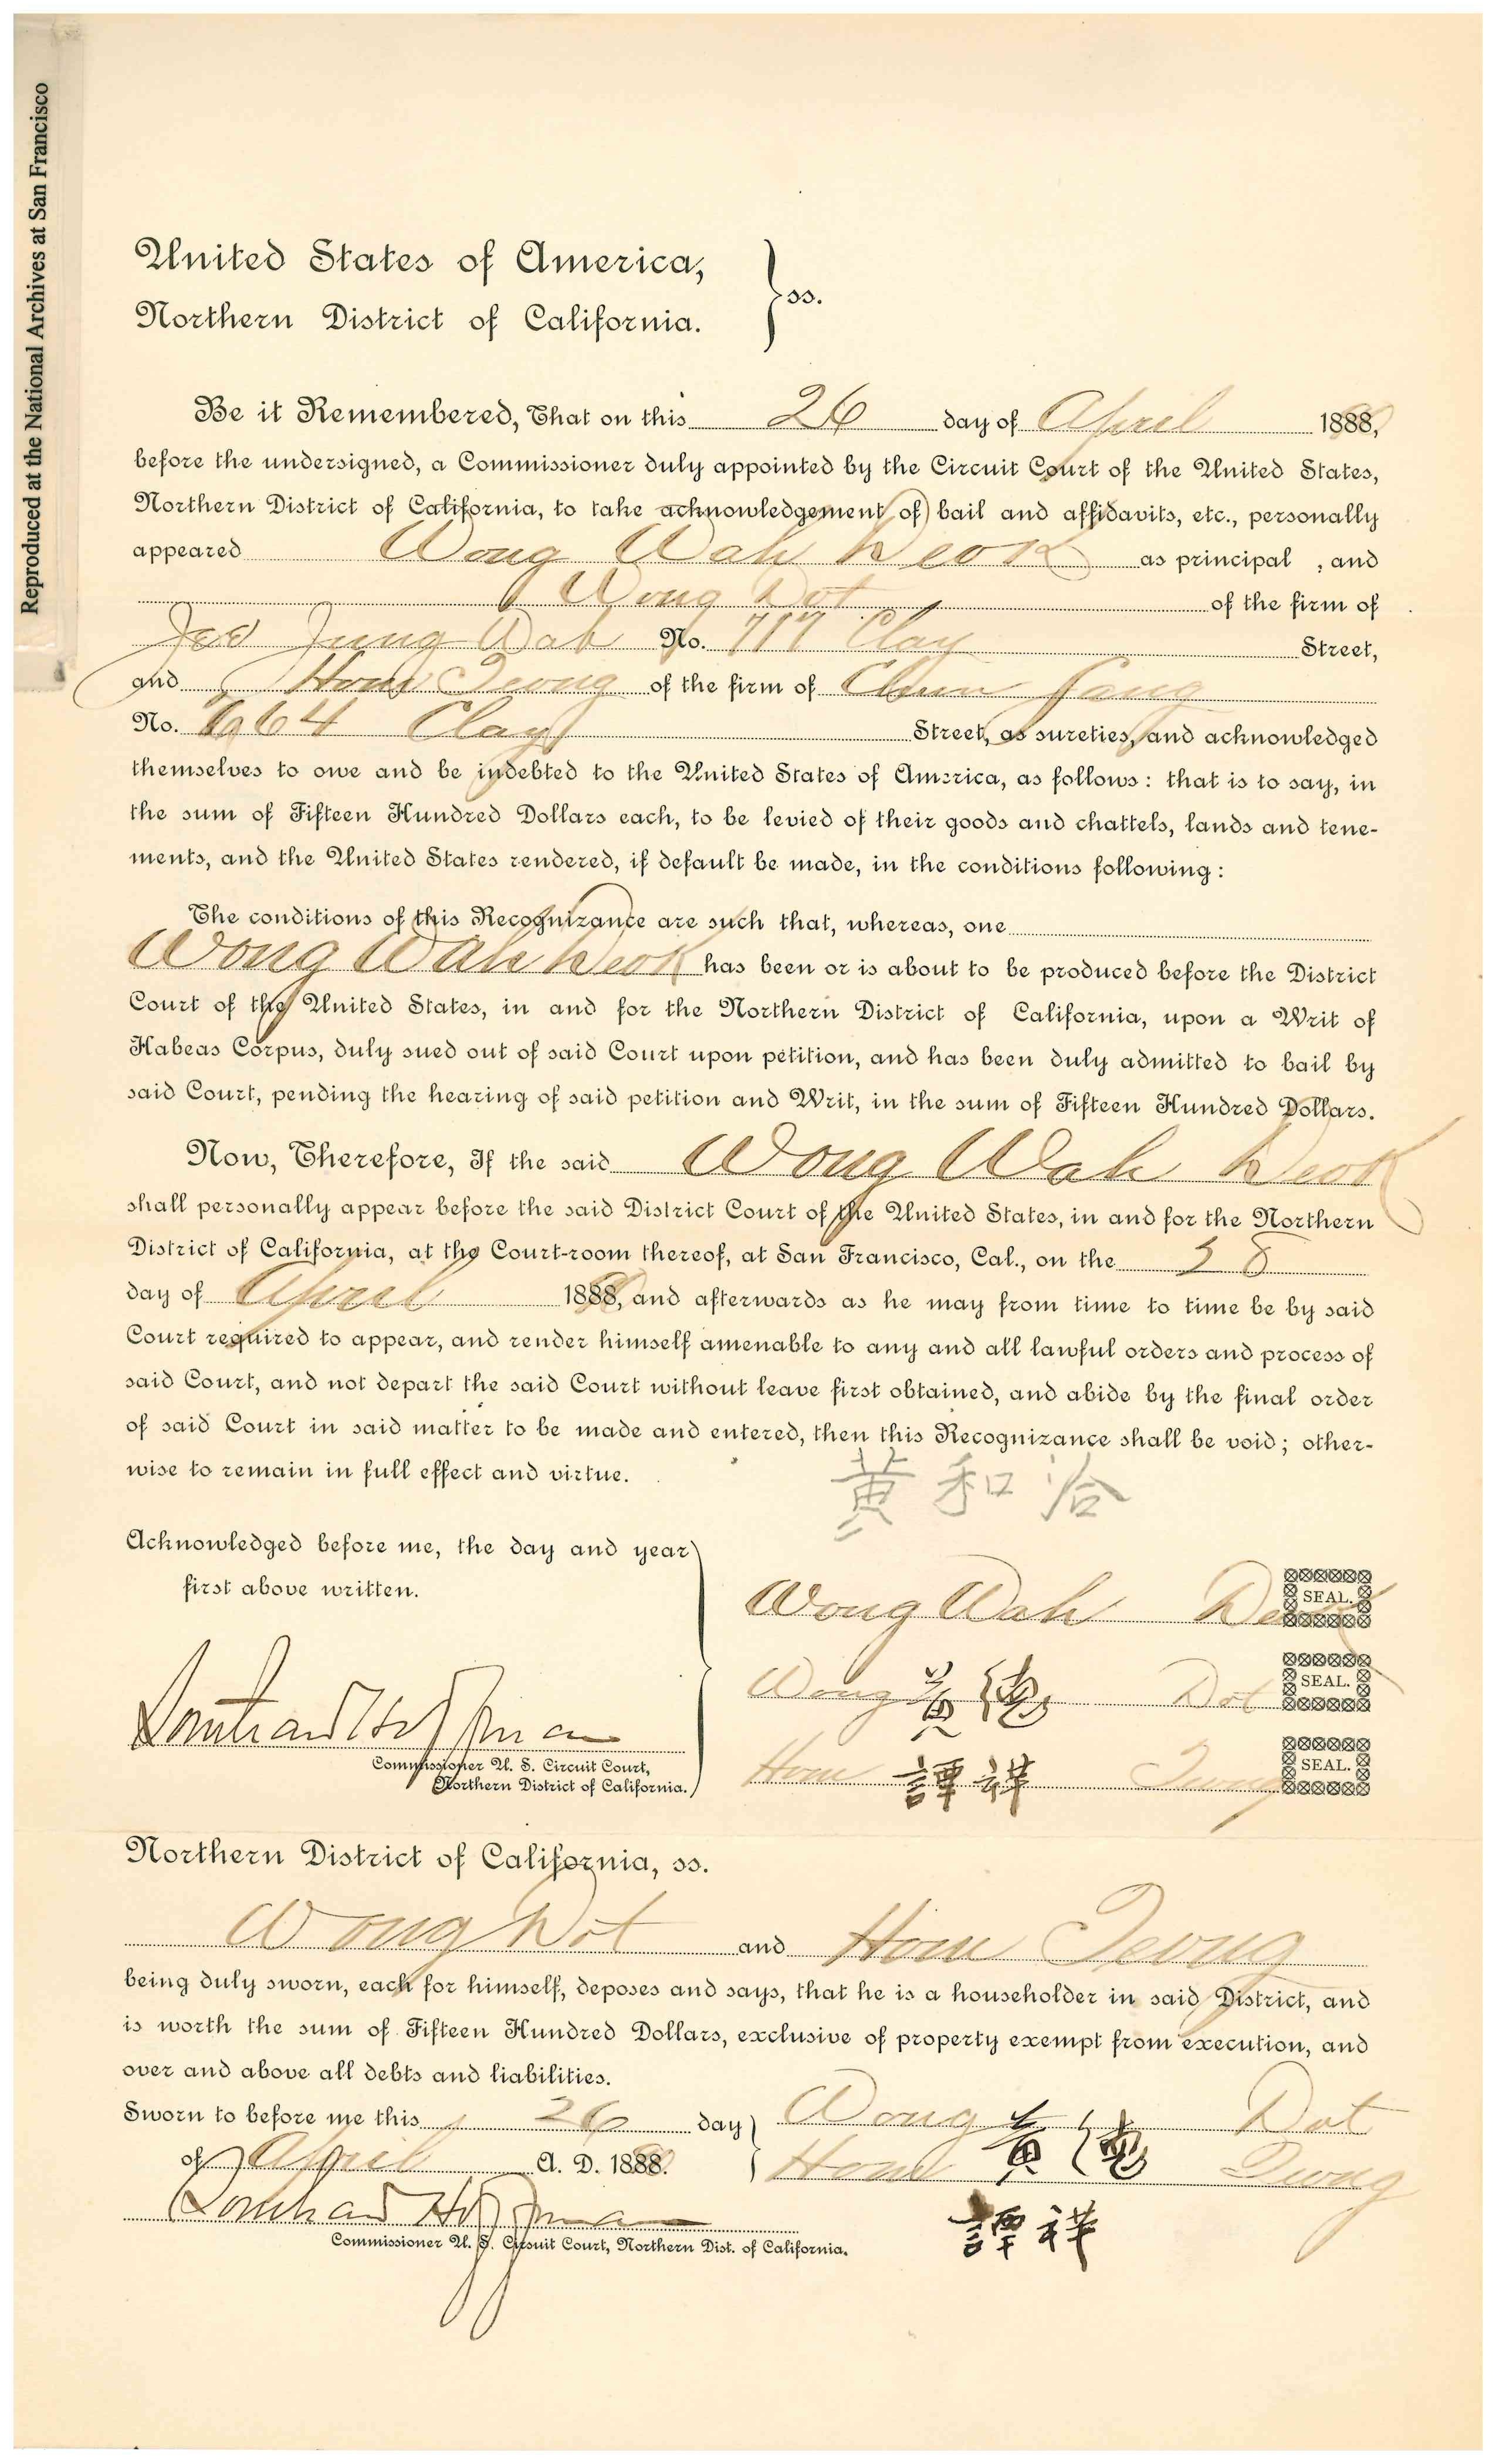 Reproduced at the National Archives at San Francisco
United States of America,
Northern District of California. } ss.
Be it Remembered, That on this 26 day of April 1888,
before the undersigned, a Commissioner duly appointed by the Circuit Court of the United States,
Northern District of California, to take acknowledgement of bail and affidavits, etc., personally
appeared Wong Wah as principal , and
Wong Dot of the firm of
Jung Wah No. 717 Clay Street,
and Hom of the firm of
No. 664 Clay Street, as sureties, and acknowledged
themselves to owe and be indebted to the United States of America, as follows: that is to say, in
the sum of Fifteen Hundred Dollars each, to be levied of their goods and chattels, lands and tene-
ments, and the United States rendered, if default be made, in the conditions following:
The conditions of this Recognizance are such that, whereas, one
Wong Wah has been or is about to be produced before the District
Court of the United States, in and for the Northern District of California, upon a Writ of
Habeas Corpus, duly sued out of said Court upon petition, and has been duly admitted to bail by
said Court, pending the hearing of said petition and Writ, in the sum of Fifteen Hundred Dollars.
Now, Therefore, If the said Wong Wah
shall personally appear before the said District Court of the United States, in and for the Northern
District of California, at the Court-room thereof, at San Francisco, Cal., on the
day of April 1888, and afterwards as he may from time to time be by said
Court required to appear, and render himself amenable to any and all lawful orders and process of
said Court, and not depart the said Court without leave first obtained, and abide by the final order
of said Court in said matter to be made and entered, then this Recognizance shall be void; other-
wise to remain in full effect and virtue.
黃和洽
Acknowledged before me, the day and year
first above written.
Wong Wah SEAL.
Wong 黃德 Dot SEAL.
Hom 譚祥 SEAL.
Commissioner U. S. Circuit Court,
Northern District of California.
Northern District of California, ss.
Wong Dot and Hom
being duly sworn, each for himself, deposes and says, that he is a householder in said District, and
is worth the sum of Fifteen Hundred Dollars, exclusive of property exempt from execution, and
over and above all debts and liabilities.
Sworn to before me this 26 day
of April A. D. 1888.
Wong 黃德 Dot
Hom
譚祥
Commissioner U. S. Circuit Court, Northern Dist. of California.